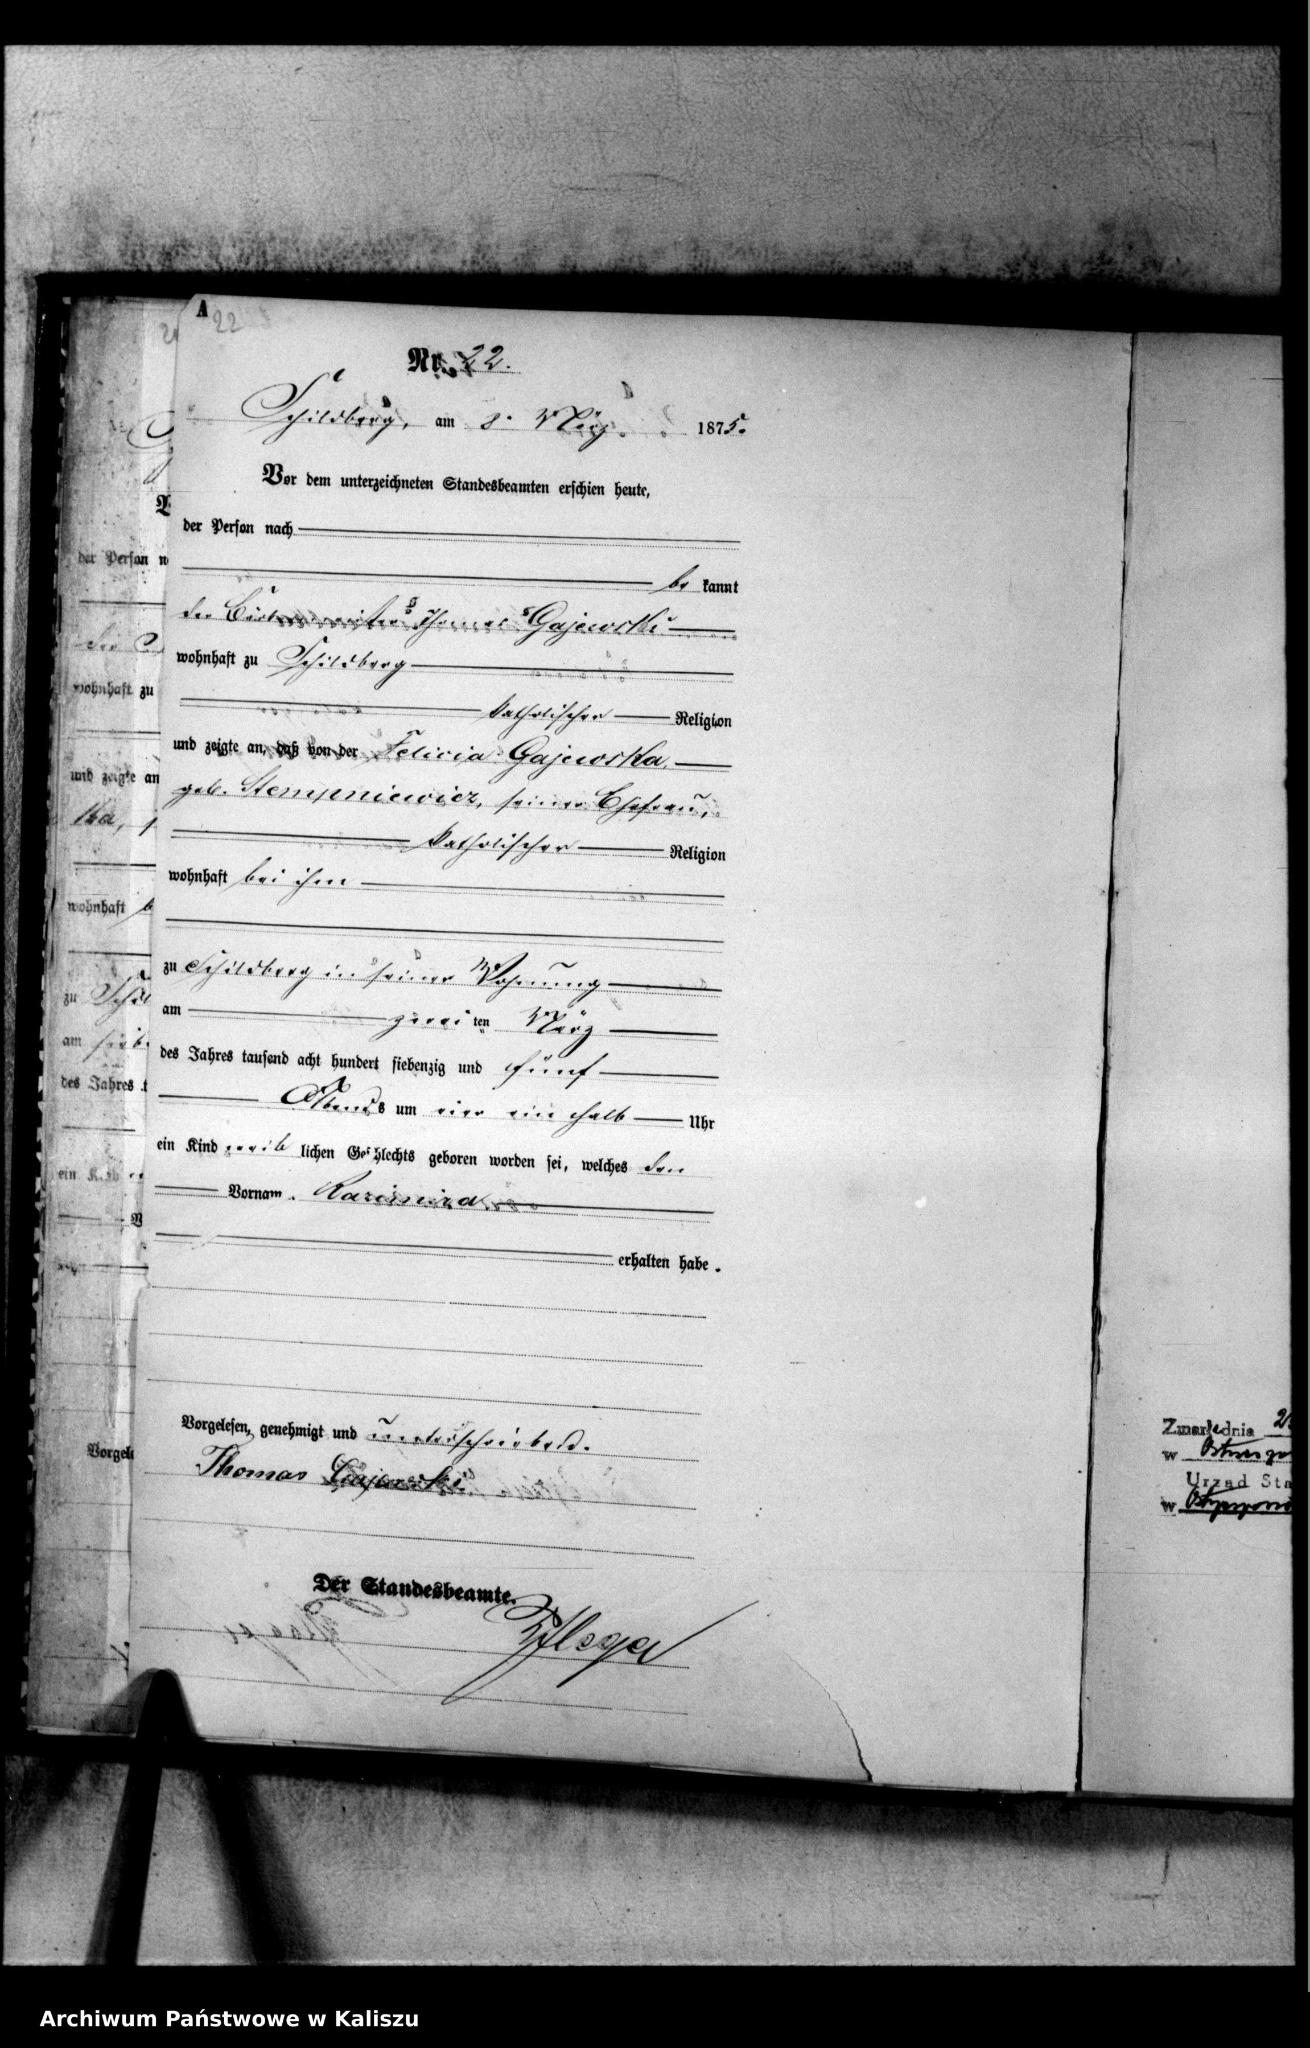 A 22
Nr. 22.
Schildberg, am 8. März 1875.
Vor dem unterzeichneten Standesbeamten erschien heute,
der Person nach
be kannt
der Thomas Gajewski
wohnhaft zu Schildberg
katholischer Religion
und zeigte an, daß von der Felicia Gajewska,
geb. Stempniewicz, seiner Ehefrau,
katholischer Religion
wohnhaft bei ihm
zu Schildberg in seiner Wohnung
am zwei ten März
des Jahres tausend acht hundert siebenzig und fünf
Abends um vier ein halb Uhr
ein Kind weib lichen Geschlechts geboren worden sei, welches den
Vornam. Kazimira
erhalten habe.
Vorgelesen, genehmigt und unterschrieben.
Thomas Gajewski
Der Standesbeamte.
der Person
wohnhaft zu
und zeigte an
wohnhaft b
zu Schil
am
des Jahres t
ein Kind
Vorgele
Zmarł dnia
w
Urząd Sta
w
Archiwum Państwowe w Kaliszu